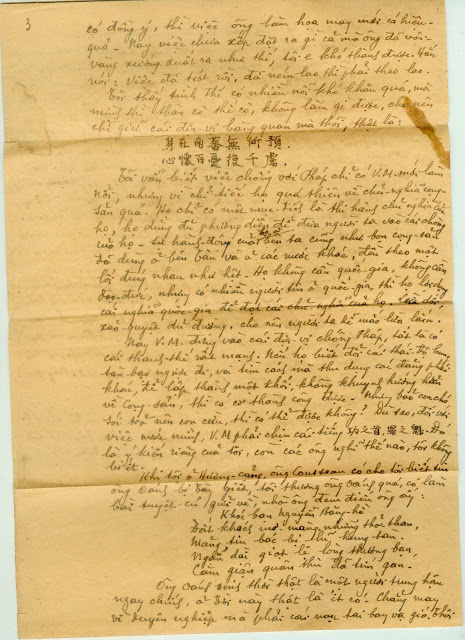 3
có đồng ý, thì việc ông làm họa may mới có hiệu-
quả - Nay việc chưa xếp đặt ra gì cả mà ông đã vội-
vàng xướng xuất ra như thế, tôi e khó thành được. Hắn
nói: Việc đã trót rồi, đã ném lao thì phải theo lao.
Tôi thấy tình thế có nhiều nỗi khó khăn quá, mà
mình thì thân cô thế cô, không làm gì được, cho nên
chỉ giữ cái địa-vị bàng quan mà thôi, thật là:
身在南蕃無所預.
心懷百憂復千慮.
Tôi vẫn biết việc chống với Pháp chỉ có V.M. mới làm
nổi, nhưng vì chỉ hiềm họ quá thiên về chủ-nghĩa cộng-
sản quá. Họ chỉ có một mục-đích là thi hành chủ nghĩa của
họ, họ dùng đủ phương diện để đưa người ta vào cái tròng
của họ - sự hành-động của bên ta cũng như bọn cộng-sản
đã dùng ở bên bản và ở các nước khác, đều theo một
lối dùng nhau như hệt. Họ không cần quốc-gia, không cần
đạo-đức, nhưng có nhiều người tin ở quốc-gia, thì họ lợi dụng
cái nghĩa quốc-gia để đạt cái chủ nghĩa của họ.
xảo-quyệt đủ đường. cho nên người ta dễ mắc lừa lắm.
Nay V.M. đứng vào cái địa-vị chống Pháp, tất là có
cái thanh-thế rất mạnh. Nếu họ biết đổi cái thái-độ hung
tàn bạo ngược đi, và tìm cách mà thu dụng cái đảng phái
khác, để lập thành một khối, không khuynh hướng hẳn
về Cộng-sản, thì có cơ thành công được - Nhưng bảo con chó
sói trở nên con cừu, thì có thể được không? Dù sao, đối với
việc nước mình, V.M phải chịu cái tiếng 功之首罪之魁. Đó
là ý kiến riêng của tôi, còn các ông nghĩ thế nào, tôi không
biết.
Khi tôi ở Hương-cảng, ông Cousseau có cho tôi biết tin
ông Oánh bị bắt giết, tôi thương ông Oánh quá, có làm
bài tuyệt cú gửi về, nhờ ông đem điếu ông ấy:
Khóc bạn Nguyễn Băng-hồ
Đất khách mơ màng những thở than,
Mảng tin bác bị lũ hung tàn.
Ngắn dài giọt lệ lòng thương bạn,
Căm giận quân thù dạ tím gan -
Ông Oánh sinh thời thật là một người trung hậu
ngay chính, ở đời này thật là ít có. Chẳng may
vì duyên nghiệp mà phải cái nạn tai bay vạ gió, thôi